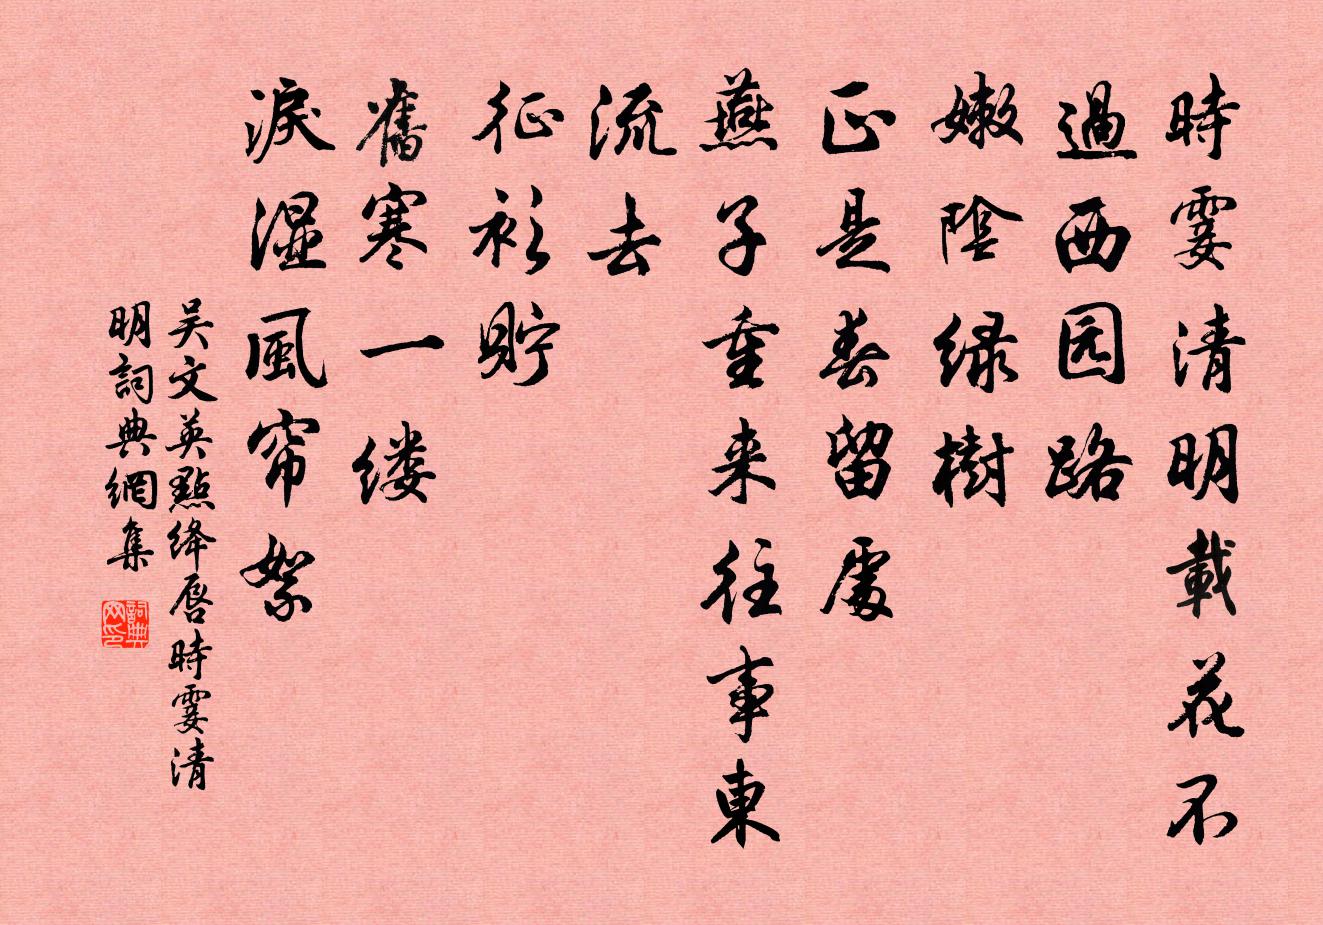 時霎清明載花不
過西园路
嫩陰緑樹
正是春留處
燕子重来往事東
流去
征衫貯
舊寒一缕
淚湿風帘絮
吴文英點绛唇時霎清
明詞典網集
詞典网印